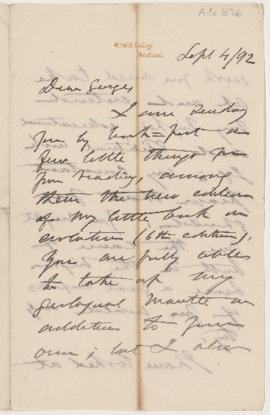 Acc 526
McGill College
Montreal
Sept 4/92
Dear George
I am sending
you by book-post a
few little things for
your reading, among
them the new edition
of my little book on
evolution (6th edition).
You are fully able
to take up my
geological mantle in
addition to your
own; but I also